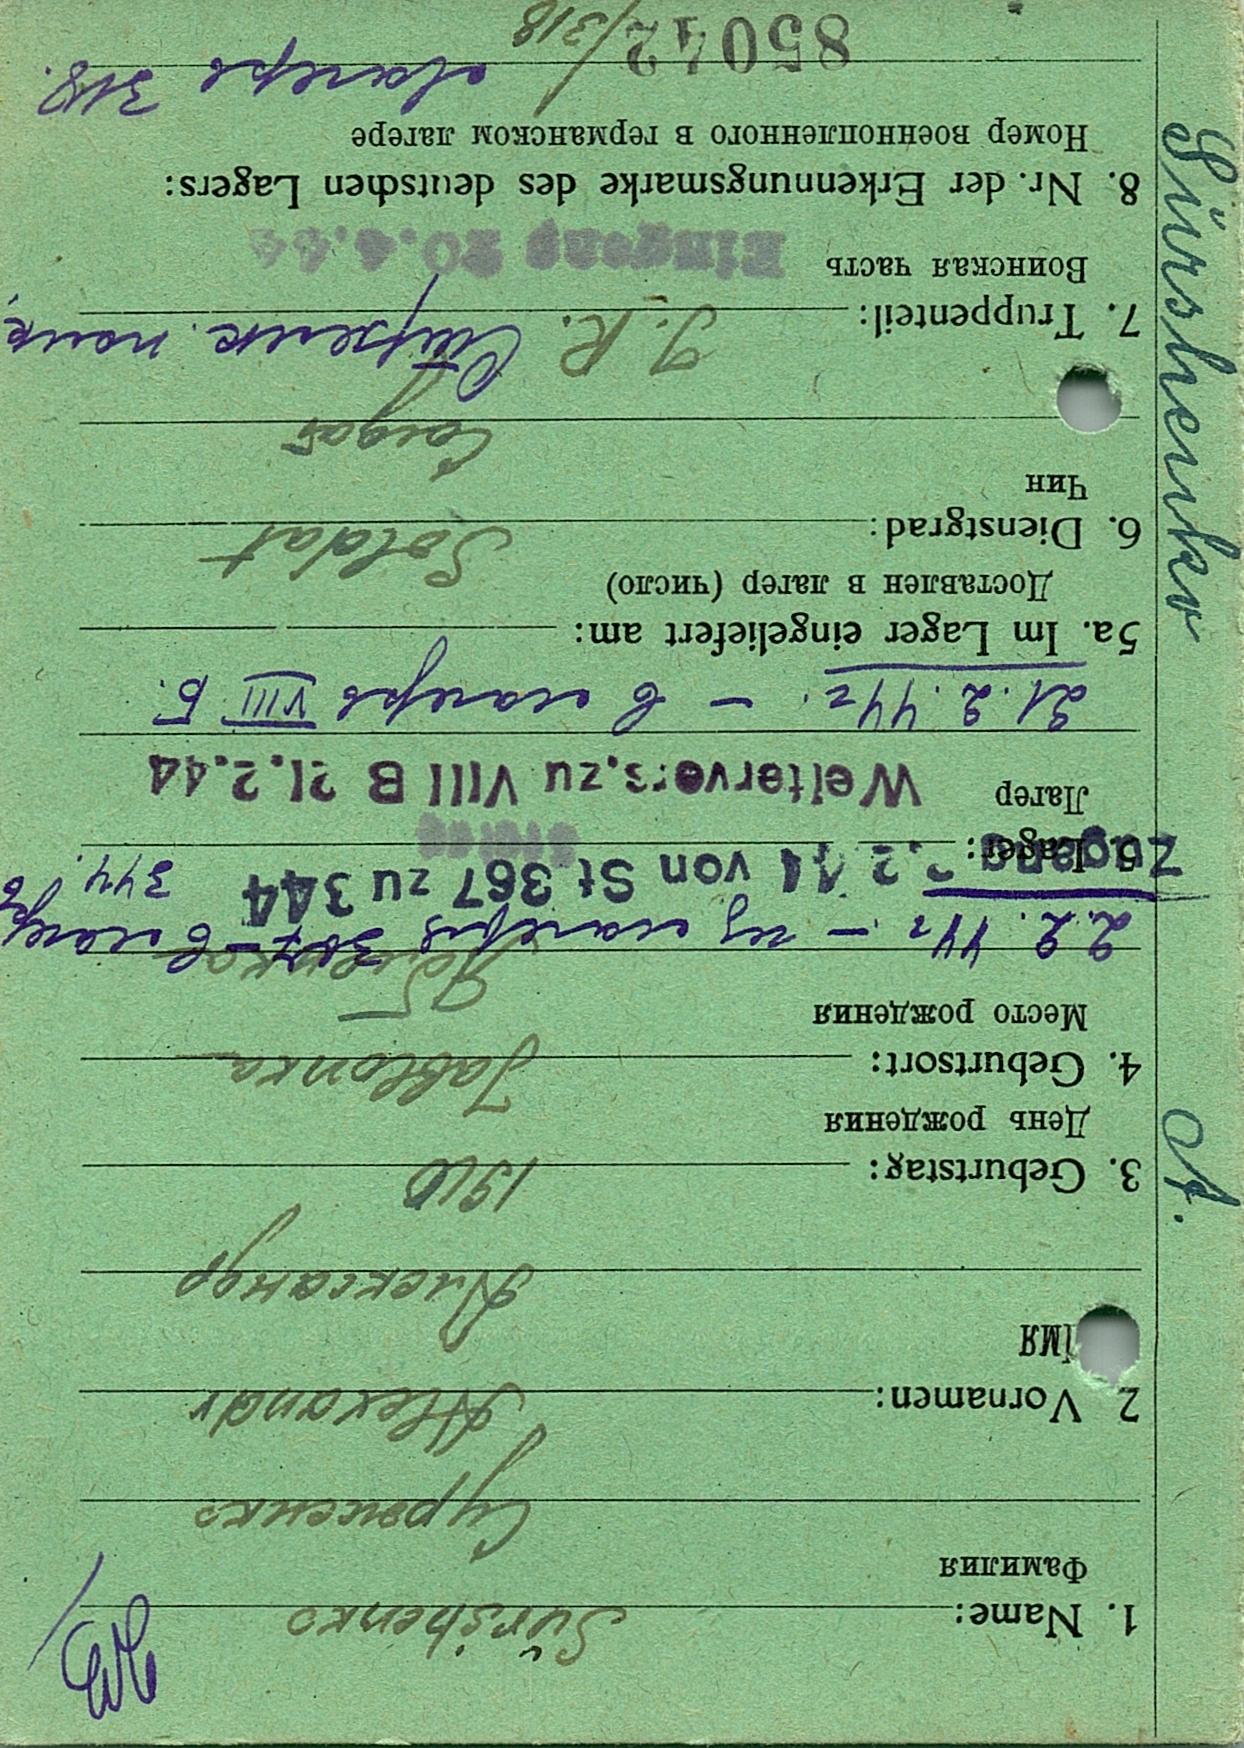 Sürshenko A.
1. Name: Sürshenko
Фамилия
Сурженко
2 Vornamen: Alexandr
Имя
Александр
3. Geburtstag: 1910
День рождения
4. Geburtsort: Jablonka
Место рождения
2.2.44г – из лагеря 367 – в лагерь 344.
Zugang 2.2.44 von St.367 zu 344
5 Lager:
Лагерь
Weitervers.zu VIII B 21.2.44
21.2.44г. – в лагерь VIII Б.
5a. Im Lager eingeliefert am:
Доставлен в лагер (число)
6. Dienstgrad: Soldat
Чин
Солдат
7. Truppenteil: J.R. Стрелк. полк,
Воинская часть
Eingang 20.4.44
8. Nr. der Erkennungsmarke des deutschen Lagers:
Номер военнопленного в германском лагере
85042/318 лагерь 318.